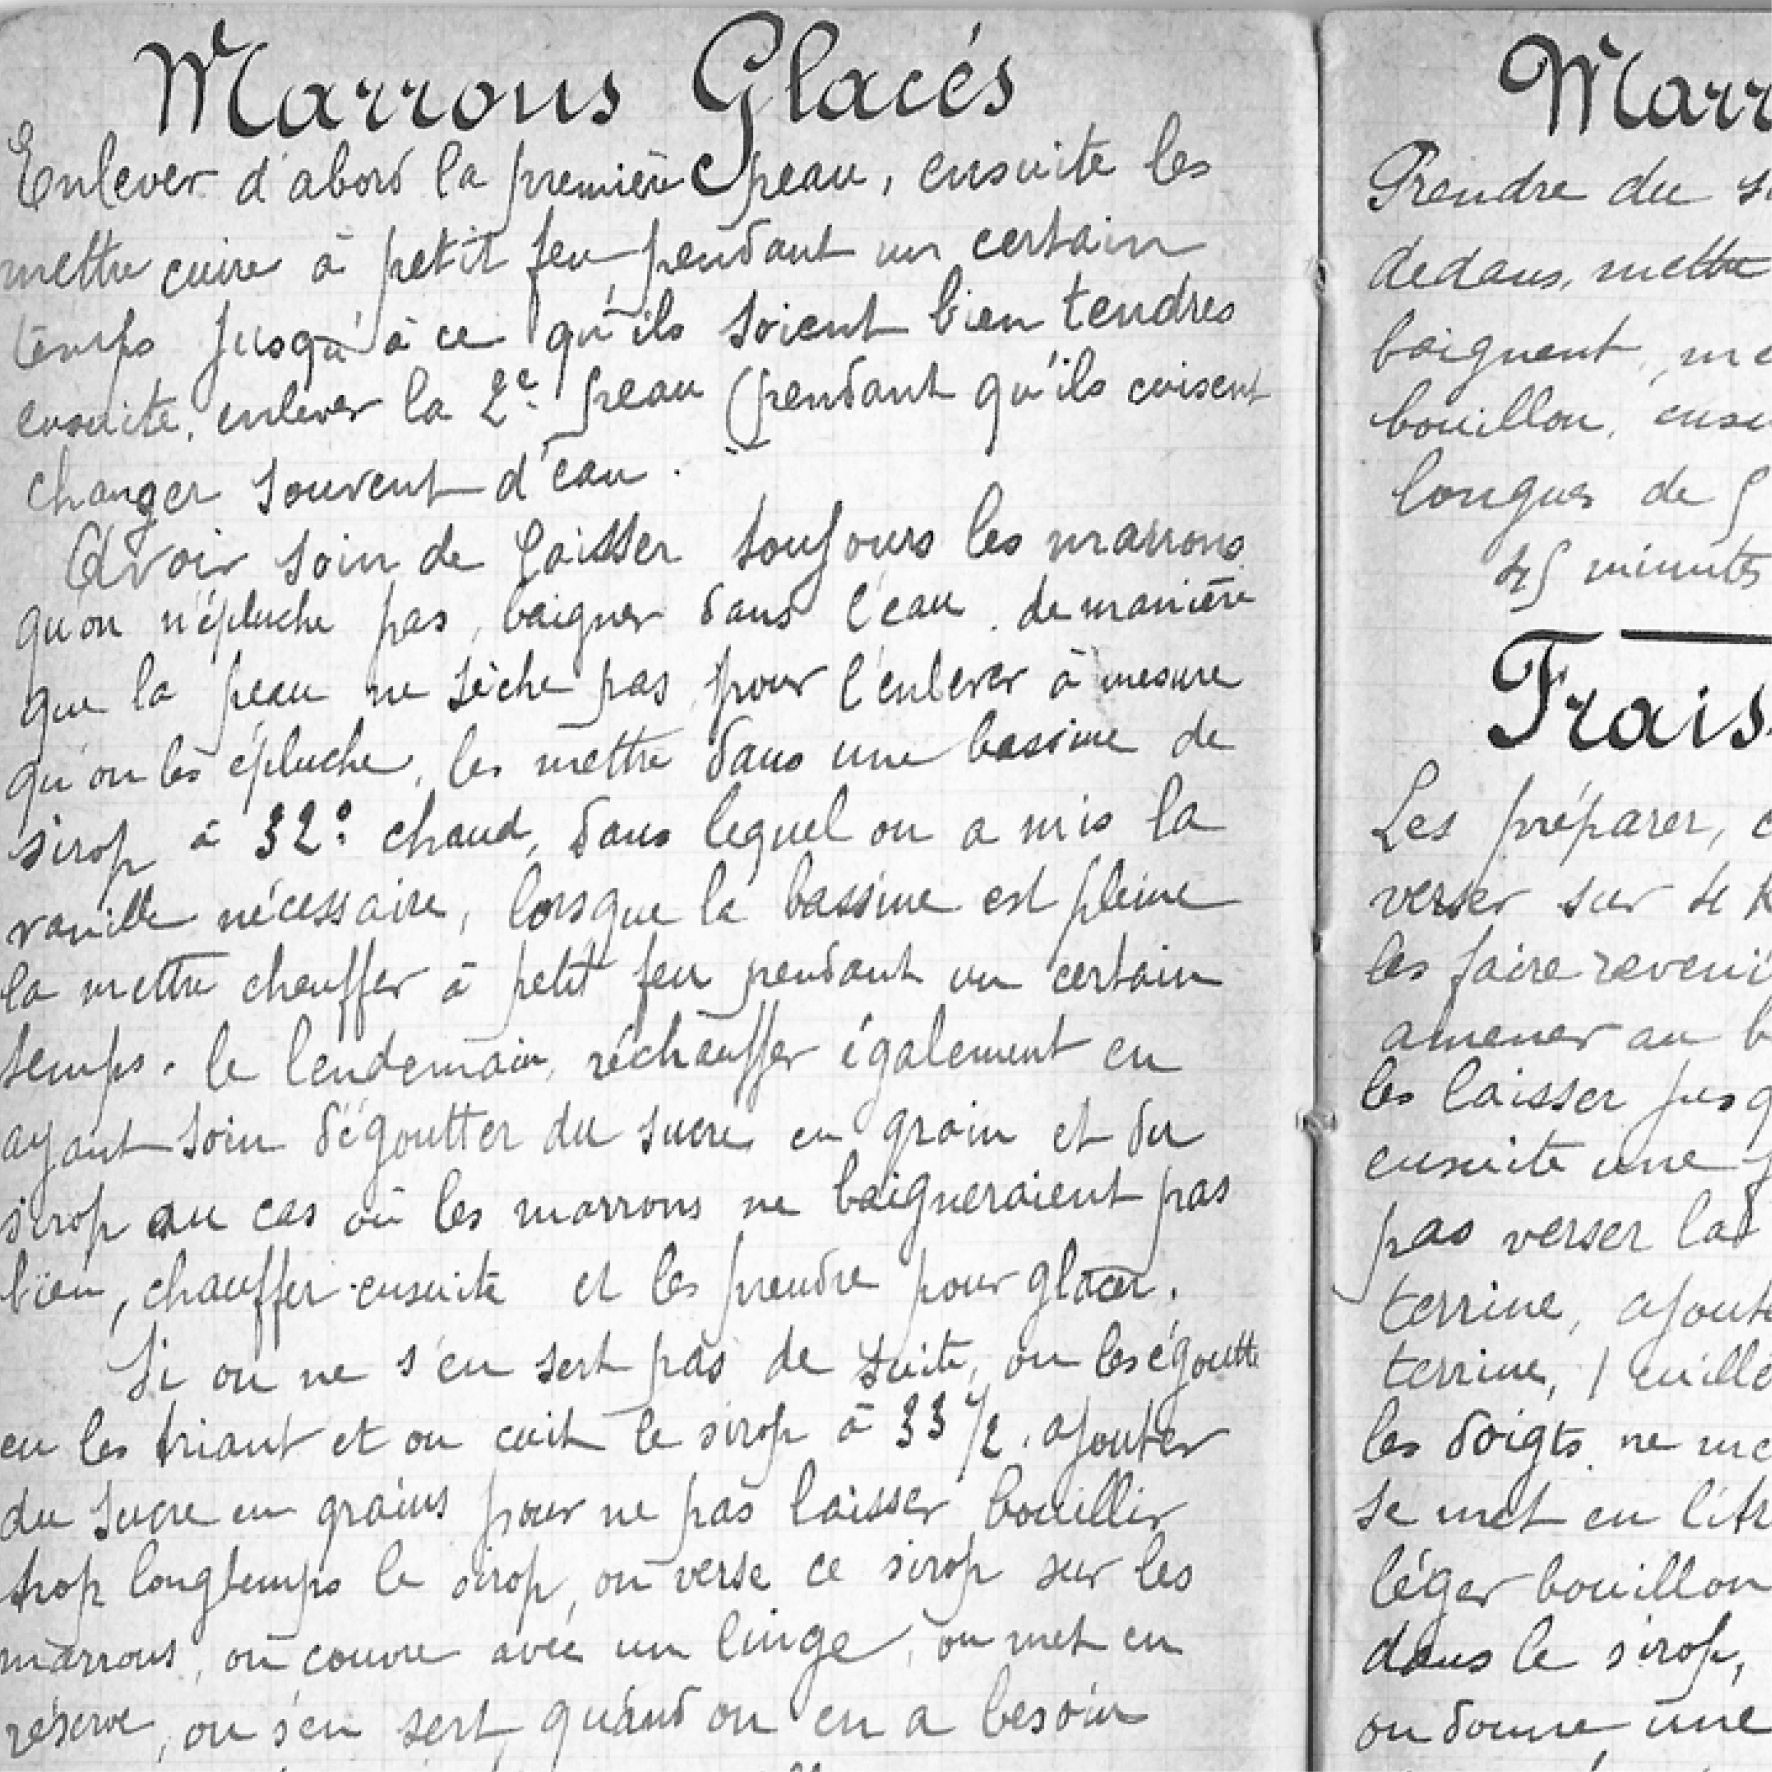 Marrons Glacés
Enlever d'abord la première peau, ensuite les
mettre cuire à petit feu pendant un certain
temps jusqu'à ce qu'ils soient bien tendres
ensuite, enlever la 2e peau (pendant qu'ils cuisent
changer souvent d'eau.
Avoir soin de laisser toujours les marrons
qu'on n'épluche pas, baigner dans l'eau, de manière
que la peau ne sèche pas, pour l'enlever à mesure
qu'on les épluche, les mettre dans une bassine de
sirop à 32° chaud, dans lequel on a mis la
vanille nécessaire, lorsque la bassine est pleine
la mettre chauffer à petit feu pendant un certain
temps. le lendemain, réchauffer également en
ayant soin d'égoutter du sucre en grain et du
sirop au cas où les marrons ne baigneraient pas
bien, chauffer ensuite et les prendre pour glacer.
Si on ne s'en sert pas de suite, on les égoutte
en les triant et on cuit le sirop à 33 1/2, ajouter
du sucre en grains pour ne pas laisser bouillir
trop longtemps le sirop, on verse ce sirop sur les
marrons, on couvre avec un linge, on met en
réserve, on s'en sert quand on en a besoin
Marr
Prendre du s
dedans, mettre
baignent, me
bouillon, ensu
longues de 5
45 minutes
Frais
Les préparer, c
verser sur le k
les faire reveni
amener au b
les laisser jusq
ensuite une
pas verser la
terrine, ajoute
terrine, 1 cuillè
les doigts, ne me
se met en litr
léger bouillon
dans le sirop,
on donne une